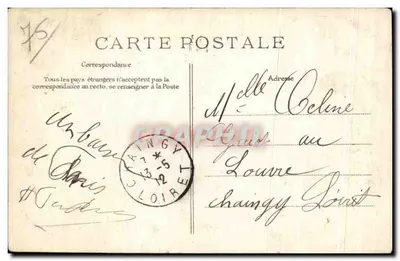 75
CARTE POSTALE
Correspondance
Tous les pays étrangers n'acceptent pas la
correspondance au recto; se renseigner à la Poste
Adresse
Melle Celine
au
Louvre
Chaingy Loiret
CHAINGY
7 *
13 -5
12
LOIRET
de Paris